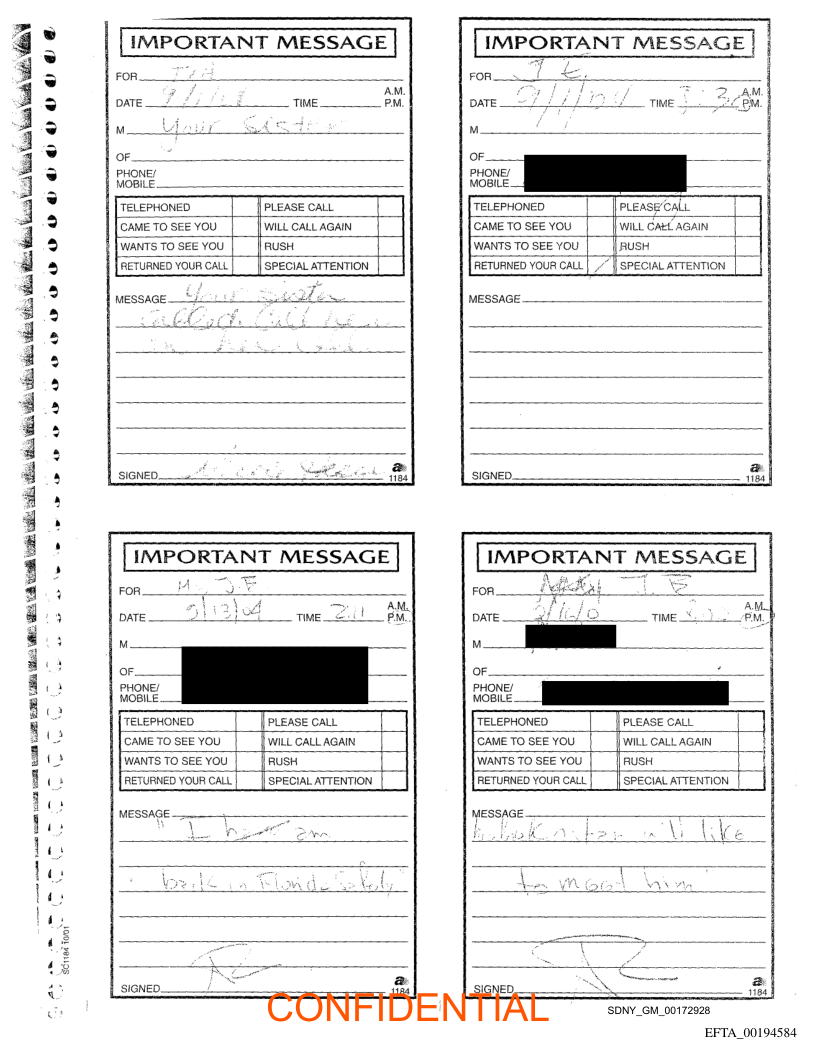 IMPORTANT MESSAGE
FOR
DATE TIME A.M. P.M.
M Your Sister
OF
PHONE/
MOBILE
TELEPHONED PLEASE CALL
CAME TO SEE YOU WILL CALL AGAIN
WANTS TO SEE YOU RUSH
RETURNED YOUR CALL SPECIAL ATTENTION
MESSAGE Your Sister
called. Call her
on her Cell.
SIGNED
a
1184
IMPORTANT MESSAGE
FOR J E.
DATE 9/1/04 TIME A.M. P.M.
M
OF
PHONE/
MOBILE
TELEPHONED PLEASE CALL
CAME TO SEE YOU WILL CALL AGAIN
WANTS TO SEE YOU RUSH
RETURNED YOUR CALL SPECIAL ATTENTION
MESSAGE
SIGNED
a
1184
IMPORTANT MESSAGE
FOR M. J.E
DATE 9/13/04 TIME 2:11 A.M. P.M.
M
OF
PHONE/
MOBILE
TELEPHONED PLEASE CALL
CAME TO SEE YOU WILL CALL AGAIN
WANTS TO SEE YOU RUSH
RETURNED YOUR CALL SPECIAL ATTENTION
MESSAGE
" I am
back in Florida Safely"
SIGNED
a
1184
IMPORTANT MESSAGE
FOR
DATE TIME A.M. P.M.
M
OF
PHONE/
MOBILE
TELEPHONED PLEASE CALL
CAME TO SEE YOU WILL CALL AGAIN
WANTS TO SEE YOU RUSH
RETURNED YOUR CALL SPECIAL ATTENTION
MESSAGE
like
to meet him
SIGNED
a
1184
SC1184 10/01
CONFIDENTIAL
SDNY_GM_00172928
EFTA_00194584